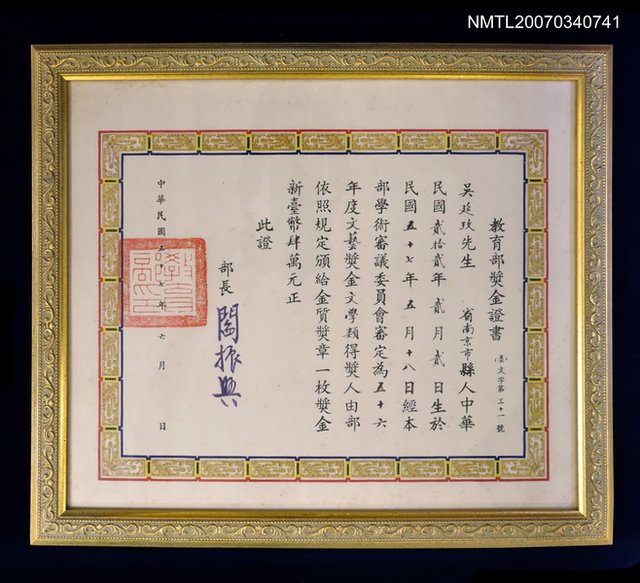 NMTL20070340741
教育部獎金證書
(臺)文字第三十一號
吳廷玫先生 省南京市縣人中華
民國貳拾貳年貳月貳日生於
民國五十七年五月十八日經本
部學術審議委員會審定為五十六
年度文藝獎金文學類得獎人由部
依照規定頒給金質獎章一枚獎金
新臺幣肆萬元正
此證
部長 閻振興
中華民國五十七年六月 日